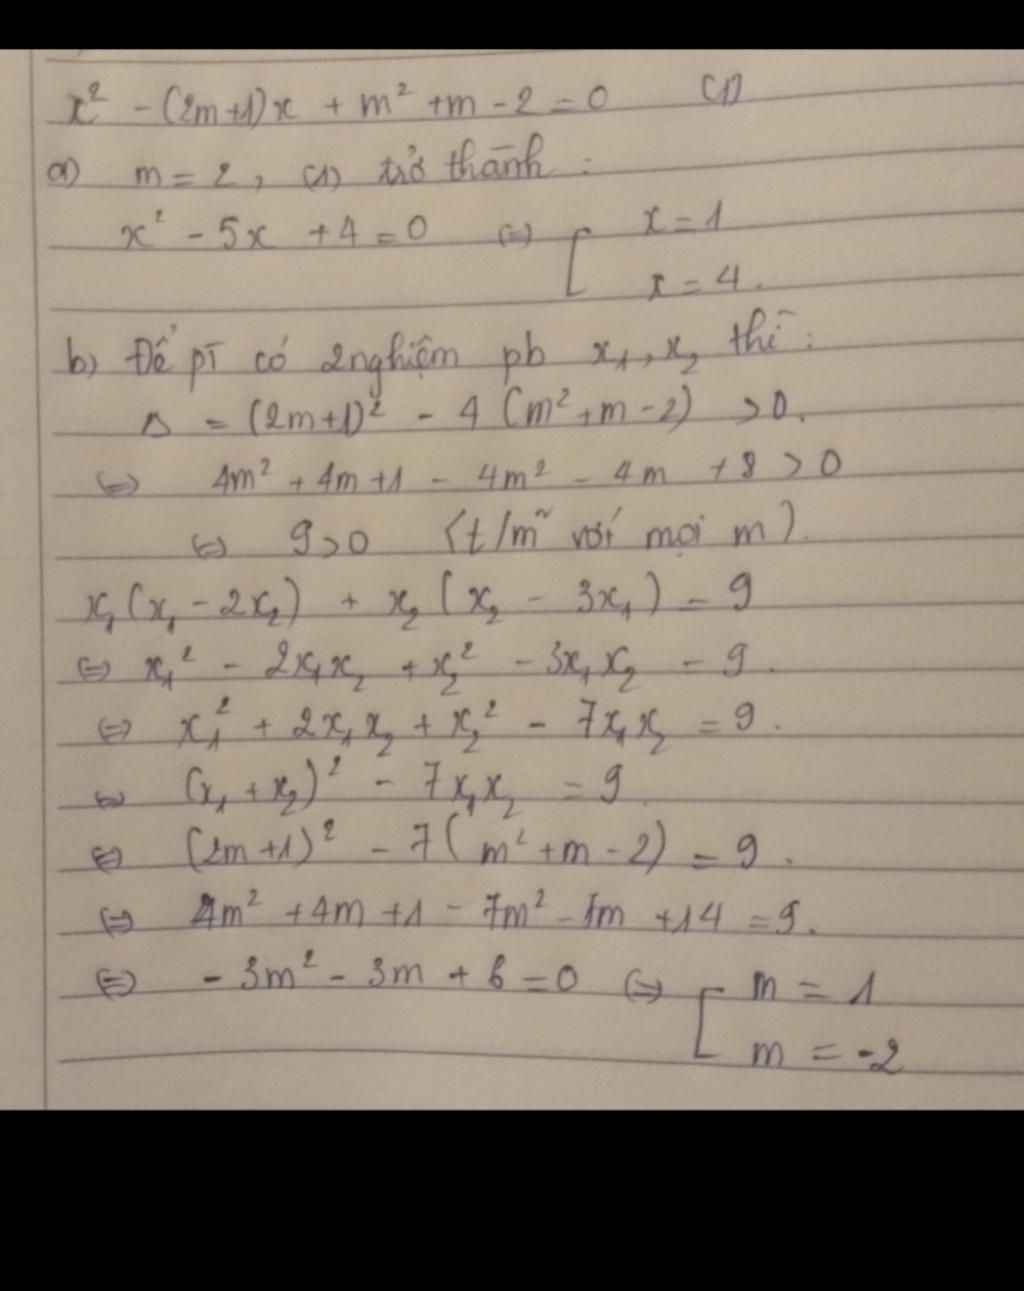 x² - (2m+1)x + m² + m - 2 = 0 (1)
a) m = 2, (1) trở thành :
x² - 5x + 4 = 0 (=) [ x = 1
x = 4.
b) Để pt có 2 nghiệm pb x₁, x₂ thì :
Δ = (2m+1)² - 4 (m² + m - 2) > 0.
(=) 4m² + 4m + 1 - 4m² - 4m + 8 > 0
(=) 9 > 0 (t/m~ với mọi m).
x₁(x₁ - 2x₂) + x₂(x₂ - 3x₁) = 9
(=) x₁² - 2x₁x₂ + x₂² - 3x₁x₂ = 9.
(=) x₁² + 2x₁x₂ + x₂² - 7x₁x₂ = 9.
(=) (x₁ + x₂)² - 7x₁x₂ = 9
(=) (2m+1)² - 7(m² + m - 2) = 9.
(=) 4m² + 4m + 1 - 7m² - 7m + 14 = 9.
(=) - 3m² - 3m + 6 = 0 (=) [ m = 1
m = -2